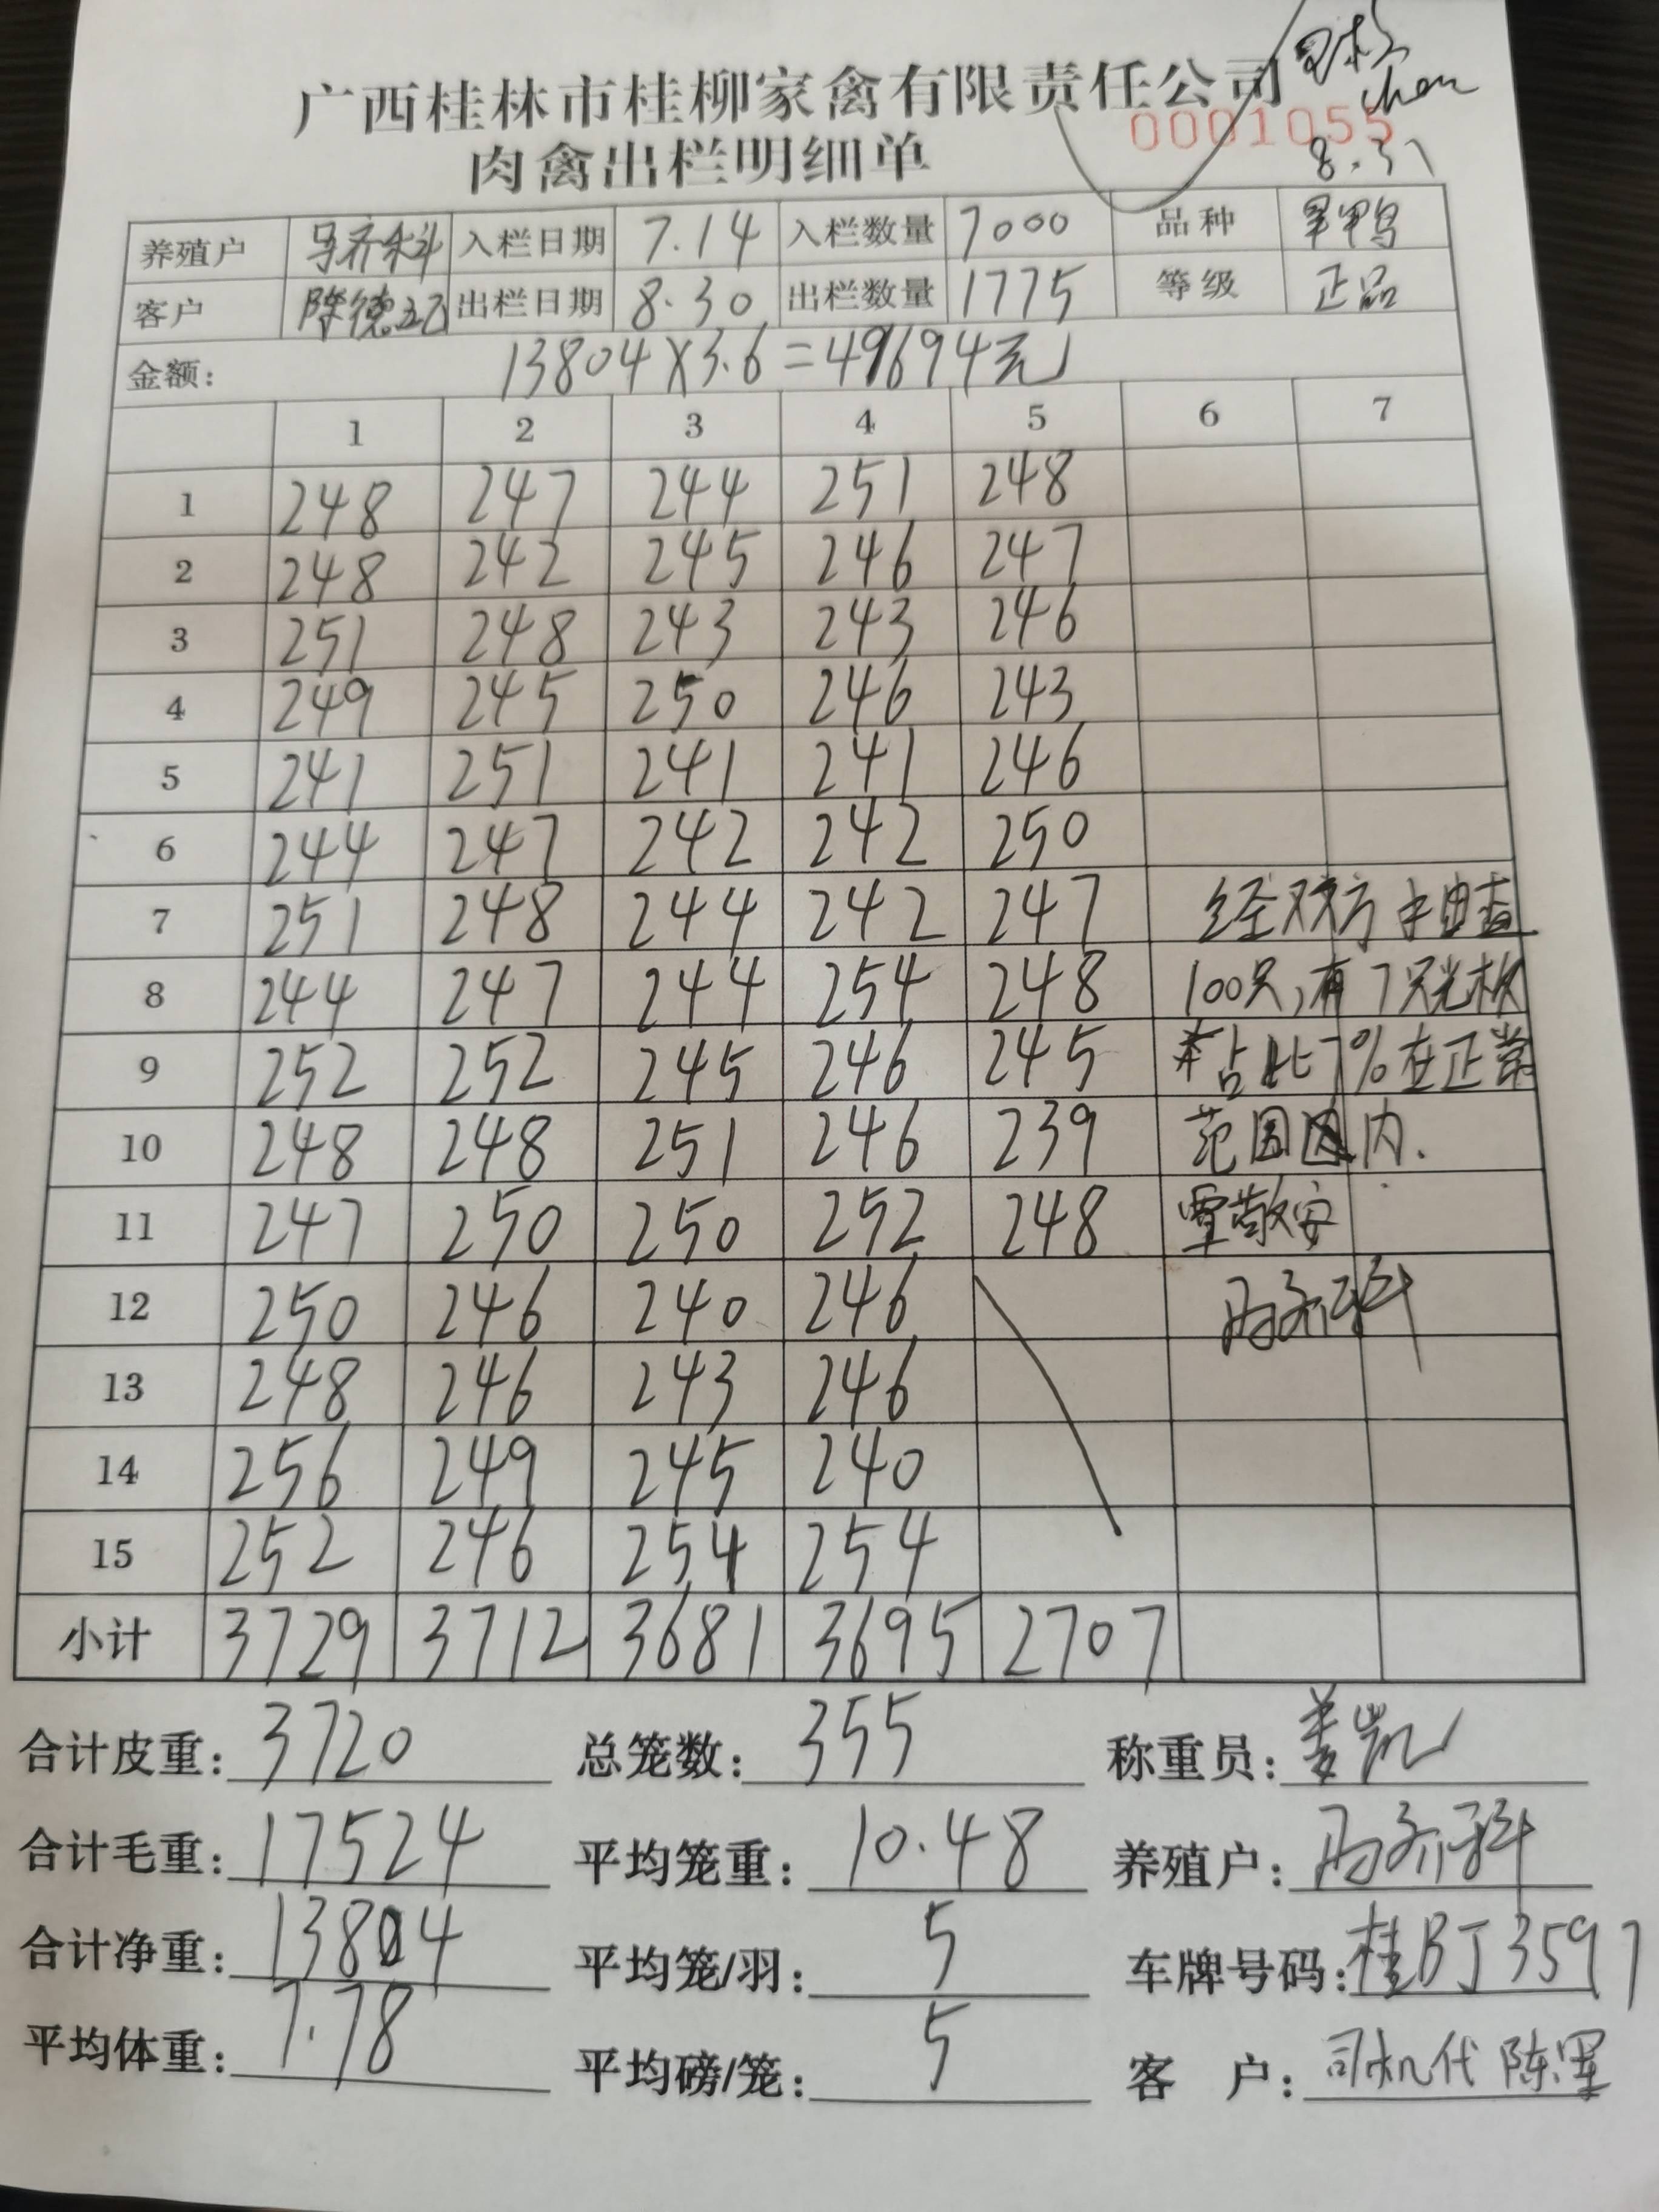 广西桂林市桂柳家禽有限责任公司
chen
0001055
肉禽出栏明细单
8.31
养殖户 马乔科 入栏日期 7.14 入栏数量 7000 品种 黑鸭
客户 陈德 出栏日期 8.30 出栏数量 1775 等级 正品
金额: 13804×3.6=49694元
1 2 3 4 5 6 7
1 248 247 244 251 248
2 248 242 245 246 247
3 251 248 243 243 246
4 249 245 250 246 243
5 241 251 241 241 246
6 244 247 242 242 250
7 251 248 244 242 247 经双方抽查
8 244 247 244 254 248 100只,有7只光板
9 252 252 245 246 245 占比7%在正常
10 248 248 251 246 239 范围内.
11 247 250 250 252 248 覃敬安
12 250 246 240 246 冯乔科
13 248 246 243 246
14 256 249 245 240
15 252 246 254 254
小计 3729 3712 3681 3695 2707
合计皮重: 3720 总笼数: 355 称重员: 姜凯
合计毛重: 17524 平均笼重: 10.48 养殖户: 冯乔科
合计净重: 13804 平均笼/羽: 5 车牌号码: 桂BJ3597
平均体重: 7.78 平均磅/笼: 5 客 户: 司机代 陈军